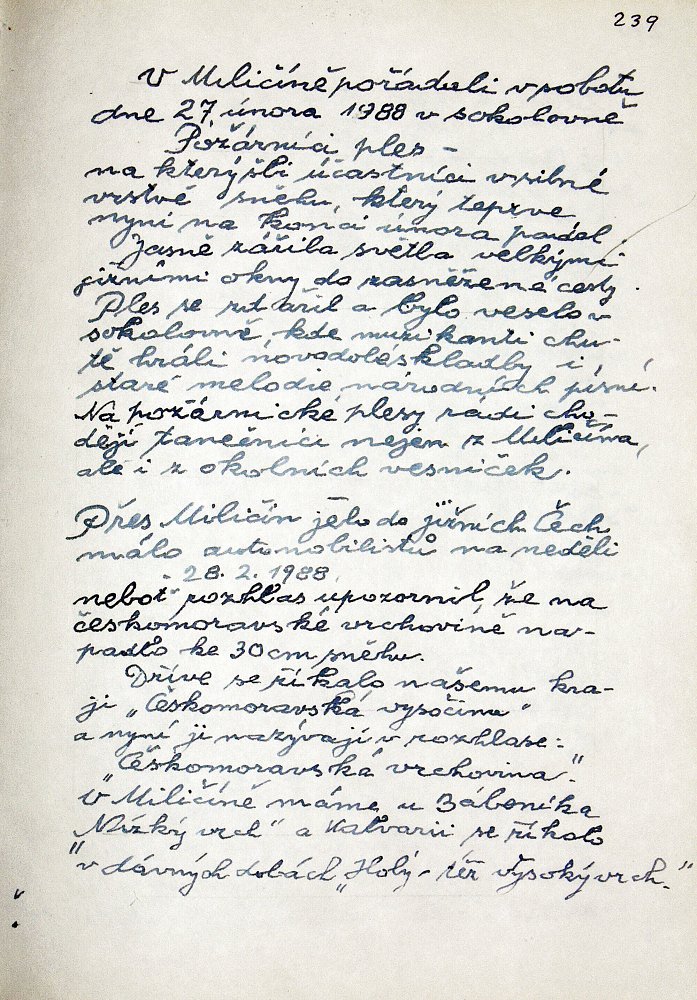 239
V Miličíně pořádali v sobotu
dne 27. února 1988 v sokolovně
Požární ples –
na který šli účastníci v silné
vrstvě sněhu, který teprve
nyní na konci února padal
Jasně zářila světla velkými
jižními okny do zasněžené cesty.
Ples se zdařil a bylo veselo v
sokolovně, kde muzikanti chu-
tě hráli novodobé skladby i
staré melodie národních písní.
Na požárnické plesy rádi cho-
dějí tanečníci nejen z Miličína,
ale i z okolních vesniček.
Přes Miličín jelo do jižních Čech
málo automobilistů na neděli
28. 2. 1988,
neboť rozhlas upozornil, že na
českomoravské vrchovině na-
padlo ke 30 cm sněhu.
Dříve se říkalo našemu kra-
ji „Českomoravská vysočina"
a nyní ji nazývají v rozhlase:
„Českomoravská vrchovina".
V Miličíně máme u Záborníka
„Nízký vrch" a Kalvarii se říkalo
v dávných dobách „Holý – též vysoký vrch."